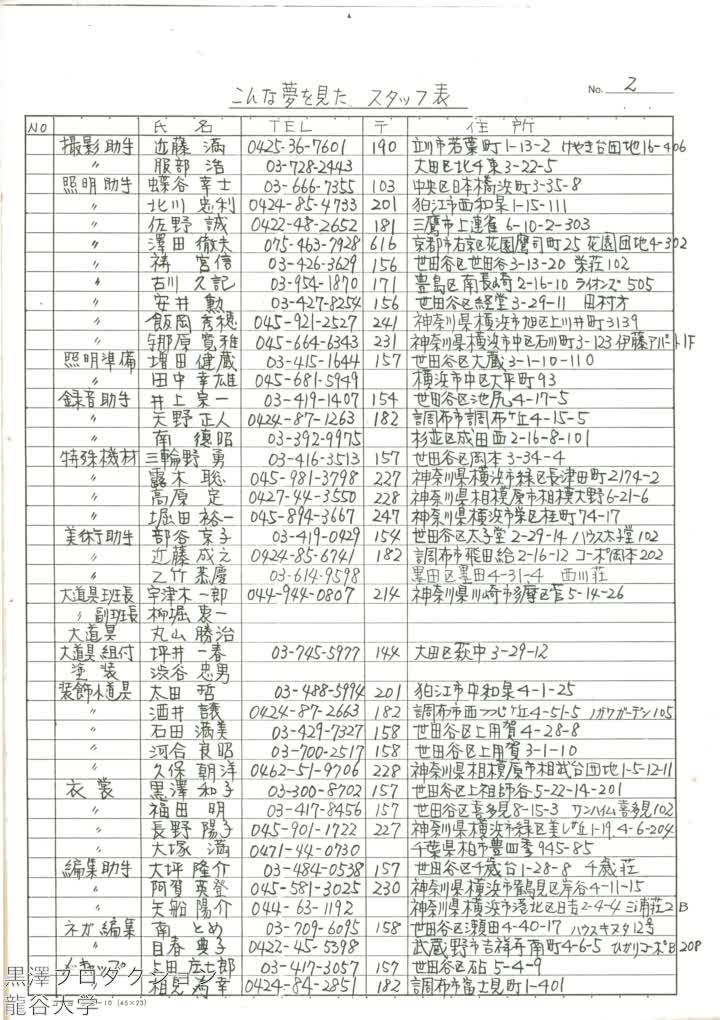 こんな夢を見た スタッフ表
No. 2
NO 氏名 TEL 〒 住所
撮影助手 近藤 満 0425-36-7601 190 立川市若葉町1-13-2 けやき台団地16-406
〃 服部 浩 03-728-2443 大田区北千束3-22-5
照明助手 蝶谷 幸士 03-666-7355 103 中央区日本橋浜町3-35-8
〃 北川 忠利 0424-85-4733 201 狛江市西和泉1-15-111
〃 佐野 誠 0422-48-2652 181 三鷹市上連雀6-10-2-303
〃 澤田 徹夫 075-463-7928 616 京都市右京区花園鷹司町25 花園団地4-302
〃 宮信 03-426-3629 156 世田谷区世田谷3-13-20 栄荘102
〃 古川 久記 03-954-1870 171 豊島区南長崎2-16-10 ライオンズ505
〃 安井 勲 03-427-8254 156 世田谷区経堂3-29-11 田村方
〃 飯岡 秀穂 045-921-2527 241 神奈川県横浜市旭区上川井町3139
〃 与那原 寛雅 045-664-6343 231 神奈川県横浜市中区石川町3-123 伊藤アパート1F
照明準備 増田 健蔵 03-415-1644 157 世田谷区大蔵3-1-10-110
〃 田中 幸雄 045-681-5949 横浜市中区大平町93
録音助手 井上 宗一 03-419-1407 154 世田谷区池尻4-17-5
〃 矢野 正人 0424-87-1263 182 調布市調布ケ丘4-15-5
〃 南 徳昭 03-392-9975 杉並区成田西2-16-8-101
特殊機材 三輪野 勇 03-416-3513 157 世田谷区岡本3-34-4
〃 露木 聡 045-981-3798 227 神奈川県横浜市緑区長津田町2174-2
〃 高原 定 0427-44-3550 228 神奈川県相模原市相模大野6-21-6
〃 堀田 裕一 045-894-3667 247 神奈川県横浜市栄区桂町74-17
美術助手 部谷 京子 03-419-0429 154 世田谷区太子堂2-29-14 ハウス太子堂102
〃 近藤 成之 0424-85-6741 182 調布市飛田給2-16-12 コーポ岡本202
〃 乙竹 恭慶 03-614-9598 墨田区墨田4-31-4 西川荘
大道具班長 宇津木 一郎 044-944-0807 214 神奈川県川崎市多摩区菅5-14-26
〃 副班長 柳堀 衷一
大道具 丸山 勝治
大道具組付 坪井 一春 03-745-5977 144 大田区萩中3-29-12
塗装 渋谷 忠男
装飾小道具 太田 哲 03-488-5994 201 狛江市中和泉4-1-25
〃 酒井 0424-87-2663 182 調布市西つつじケ丘4-51-5 ノガワガーデン105
〃 石田 満美 03-429-7327 158 世田谷区上用賀4-28-8
〃 河合 良昭 03-700-2517 158 世田谷区上用賀3-1-10
〃 久保 朝洋 0462-51-9706 228 神奈川県相模原市相武台団地1-5-12-11
衣裳 黒澤 和子 03-300-8702 157 世田谷区上祖師谷5-22-14-201
〃 福田 明 03-417-8456 157 世田谷区喜多見8-15-3 サンハイム喜多見102
〃 長野 陽子 045-901-1722 227 神奈川県横浜市緑区美しが丘1-19,4-6-204
〃 大塚 満 0471-44-0730 千葉県柏市豊四季945-85
編集助手 大坪 隆介 03-484-0538 157 世田谷区千歳台1-28-8 千歳荘
〃 阿賀 英登 045-581-3025 230 神奈川県横浜市鶴見区岸谷4-11-15
〃 矢船 陽介 044-63-1192 神奈川県横浜市港北区日吉2-4-4 三浦荘2B
ネガ編集 南 とめ 03-709-6095 158 世田谷区瀬田4-40-17 ハウスキヌタ12号
〃 日春 典子 0422-45-5398 武蔵野市吉祥寺南町4-6-5 ひかりコーポB208
メーキャップ 上田 庄七郎 03-417-3057 157 世田谷区砧5-4-9
〃 相見 為幸 0424-84-2851 182 調布市富士見町1-401
黒澤プロダクション
龍谷大学
-10 (45×23)